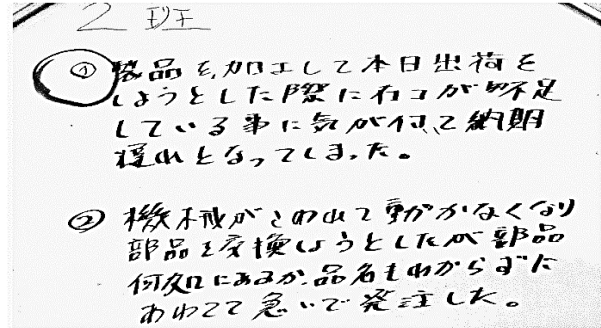 2 班
① 製品を加工して本日出荷を
しようとした際にネコが不足
している事に気が付いて納期
遅れとなってしまった。
② 機械がこわれて動かなくなり
部品を交換しようとしたが部品
何処にあるか、品名もわからずた
あわてて急いで発注した。